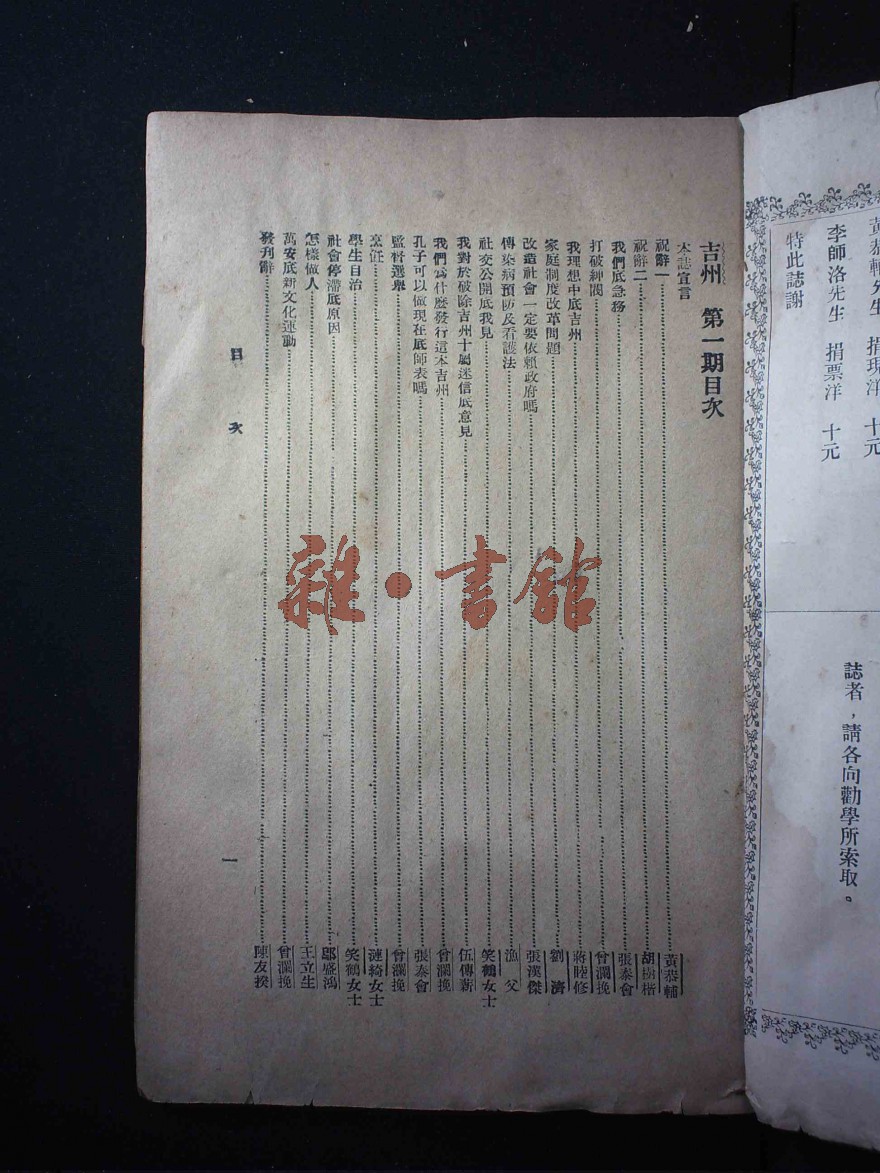 黃恭輔先生 捐現洋 十元
李師洛先生 捐票洋 十元
特此誌謝
誌者，請各向勸學所索取。
吉州 第一期目次
本誌宣言
祝辭一 黃恭輔
祝辭二 胡樹楷
我們底急務 張泰會
打破紳閥 曾瀾挽
我理想中底吉州 蔣陸修
家庭制度改革問題 劉濟
改造社會一定要依賴政府嗎 張漢傑
傳染病預防及看護法 漁父
社交公開底我見 笑鶴女士
我對於破除吉州十屬迷信底意見 伍傳薪
我們為什麼發行這本吉州 曾瀾挽
孔子可以做現在底師表嗎 張泰會
監督選舉 曾瀾挽
烹飪 漣綺女士
學生自治 笑鶴女士
社會停滯底原因 鄢盛鴻
怎樣做人 王立生
萬安底新文化運動 曾瀾挽
發刊辭 陳友揆
目次
一
雜·書館